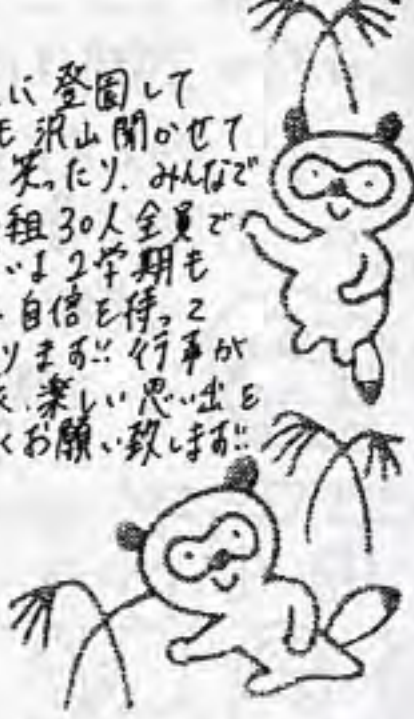 に登園して
も沢山聞かせて
笑ったり、みんなで
組30人全員で
いよ2学期も
自信を持って
ります!! 行事が
楽しい思い出を
くお願い致します!!